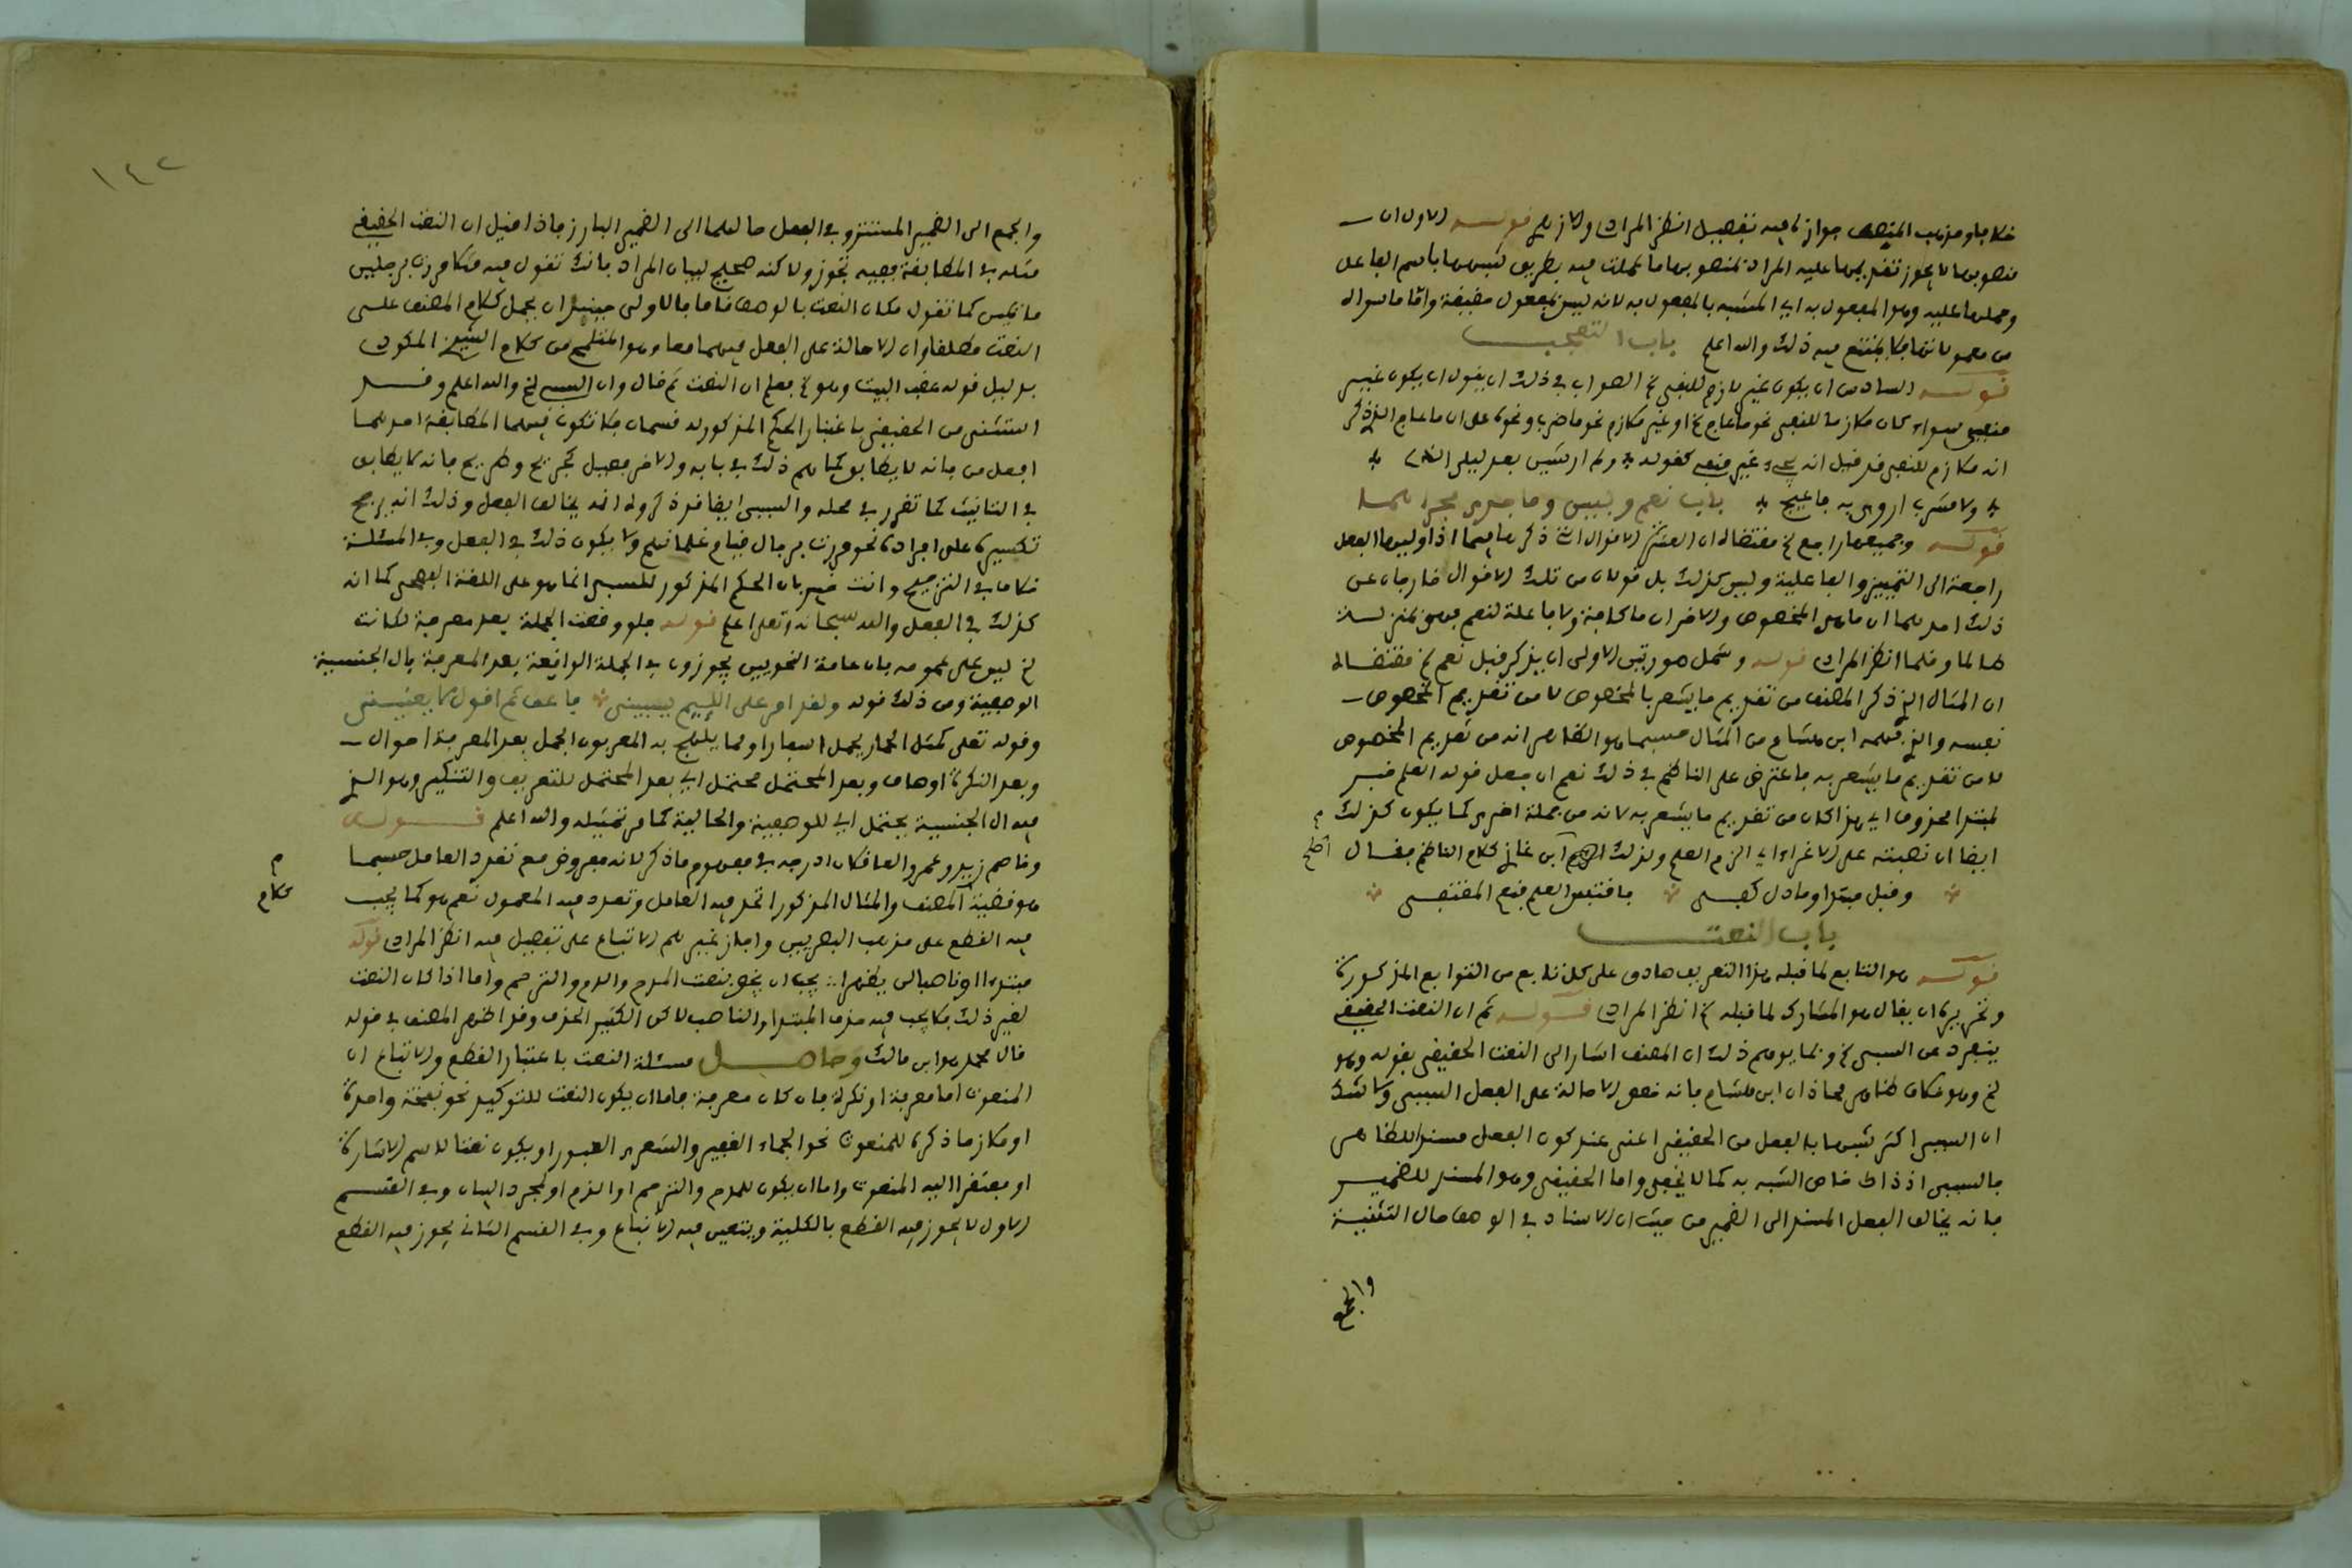 خلافا ومذهب المصنف جوازه فيه تفصيل انظر المرادي والازهري قوله الاول ان
منصوبها لا يجوز تقديمها عليه المراد بمنصوبها ما عملت فيه بطريق تشبيهها باسم الفاعل
وحملها عليه وهو المفعول به اي المشبه بالمفعول به لانه ليس بمفعول حقيقة واما ما سواه
من معمولاتها فلا يمتنع فيه ذلك والله اعلم باب التعجب
قوله السادس ان يكون غير لازم للنفي الخ الصواب في ذلك ان يقول ان يكون غير
منفي سواء كان ملازما للنفي نحو ما عاج الخ او غير ملازم نحو ما ضرب ونحوه على ان ما عاج الذي ذكر
انه ملازم للنفي قد قيل انه يجيء غير منفي كقوله * ولم ار شيئا بعد ليلى الذه *
* ولا مشربا اروى به فاعيج * باب نعم وبيس وما جرى مجراهما
قوله وجميعها راجع الخ مقتضاه ان العشرة الاقوال التي ذكرها فيما اذا وليها الفعل
راجعة الى التمييز والفاعلية وليس كذلك بل قولان من تلك الاقوال خارجان عن
ذلك احدهما ان ما هي المخصوص والاخر ان ما كافة ولا فاعلة لنعم فهو بمنزلة
طالما وقلما انظر المرادي قوله وشمل صورتين الاولى ان يذكر قبل نعم الخ مقتضاه
ان المثال الذي ذكر المصنف من تقديم ما يشعر بالمخصوص لا من تقديم المخصوص
نفسه والذي فهمه ابن هشام من المثال حسبما هو الظاهر انه من تقديم المخصوص
لا من تقديم ما يشعر به فاعترض على الناظم في ذلك نعم ان جعل قوله العلم خبر
لمبتدا محذوف اي هذا كان من تقديم ما يشعر به لانه من جملة اخرى كما يكون كذلك
ايضا ان نصبته على الاغراء اي الزم العلم ولذلك اصلح ابن غازي كلام الناظم فقال
اصلح
* وقبل مبتدا وما دل كفى * فاقتبس العلم فنعم المقتفى *
باب النعت
قوله هو التابع لما قبله هذا التعريف صادق على كل تابع من التوابع المذكورة
وتحريره ان يقال هو المشارك لما قبله الخ انظر المرادي قوله ثم ان النعت الحقيقي
ينفرد عن السببي الخ وبما يوهم ذلك ان المصنف اشار الى النعت الحقيقي بقوله وهو
الخ وهو مكان ظاهر محاذ ان ابن هشام فانه خص الاحالة على الفعل السببي ولا شك
ان السببي اكثر شبها بالفعل من الحقيقي اعني عند كون الفعل مسندا للظاهر
فالسببي اذ ذاك خاص الشبه به كما لا يخفى واما الحقيقي وهو المسند للضمير
فانه يخالف الفعل المسند الى الضمير من حيث ان الاسناد في الوصف حال التثنية
والجمع
١٤٢
والجمع الى الضمير المستتر وفي الفعل حالهما الى الضمير البارز فاذا قيل ان النعت الحقيقي
مثله في المطابقة ففيه تجوز ولاكنه صحيح لبيان المراد فانك تقول فيه مثلا مررت برجلين
ماييس كما تقول مكان النعت بالوصف قاما فالاولى حينئذ ان يحمل كلام المصنف على
النعت مطلقا وان الاحالة على الفعل فيهما معا وهو المفهوم من كلام الشيخ المكودي
بدليل قوله عقب البيت وهو الخ فعلم ان النعت ثم قال وان السببي الخ والله اعلم وقد
استثنى من الحقيقي باعتبار الحكم المذكور له قسمان فلا تكون فيهما المطابقة احدهما
افعل من فانه لا يطابق كما علم ذلك في بابه والاخر فعيل كجريح وطريح فانه لا يطابق
في التانيث كما تقرر في محله والسببي ايضا قد ذكروا انه يخالف الفعل وذلك انه يرجح
تكسيره على افراده نحو مررت برجال قيام غلمانهم ولا يكون ذلك في الفعل وفي المسئلة
خلاف في الترجيح وانت خبير بان الحكم المذكور للسببي انما هو على اللغة الفصحى كما انه
كذلك في الفعل والله سبحانه وتعلى اعلم قوله فلو وقعت الجملة بعد معرفة لكانت
الخ ليس على عمومه فان عامة النحويين يجوزون في الجملة الواقعة بعد المعرفة بال الجنسية
الوصفية ومن ذلك قوله ولقد امر على الليم يسبني * فاعف ثم اقول لا يعنيني
وقوله تعلى كمثل الحمار يحمل اسفارا ومما يلهج به المعربون الجمل بعد المعرفة احوال
وبعد النكرة اوصاف وبعد المحتمل محتمل اي بعد المحتمل للتعريف والتنكير وهو الذي
فيه ال الجنسية يحتمل اي للوصفية والحالية كما مر تمثيله والله اعلم قوله
وخاصم زيد وعمرو العاقلان ادرجه في مفهوم ما ذكر لانه مفروض مع تعدد العامل حسبما
هو قضية المصنف والمثال المذكور اتحد فيه العامل وتعدد فيه المعمول نعم هو كما يجب
م كلام
فيه القطع على مذهب البصريين واجاز غيرهم الاتباع على تفصيل فيه انظر المرادي قوله
مبتدءا او ناصبا لن يظهرا .. يجب ان يخص بنعت المدح والذم والترحم واما اذا كان النعت
لغير ذلك فلا يجب فيه حذف المبتدا والناصب لاكن الكثير الحذف وقد اظهر المصنف في قوله
قال محمد هو ابن مالك وحاصل مسئلة النعت باعتبار القطع والاتباع ان
المنعوت اما معرفة او نكرة فان كان معرفة فاما ان يكون النعت للتوكيد نحو نفخة واحدة
او ملازما ذكره للمنعوت نحو الجماء الغفير والشعرى العبور او يكون نعتا لاسم الاشارة
او مفتقرا اليه المنعوت واما ان يكون للمدح والترحم او الذم او لمجرد البيان وفي القسم
الاول لا يجوز فيه القطع بالكلية ويتعين فيه الاتباع وفي القسم الثاني يجوز فيه القطع